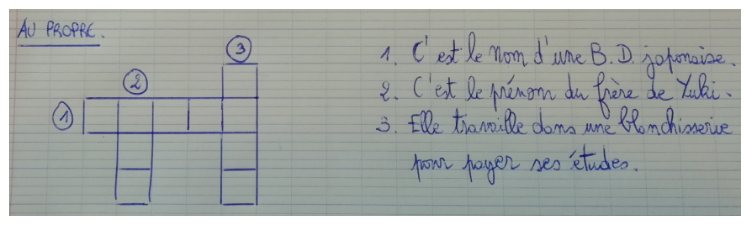 AU PROPRE.
3
2
1
1. C'est le nom d'une B.D. japonaise.
2. C'est le prénom du frère de Yuki.
3. Elle travaille dans une blanchisserie
pour payer ses études.